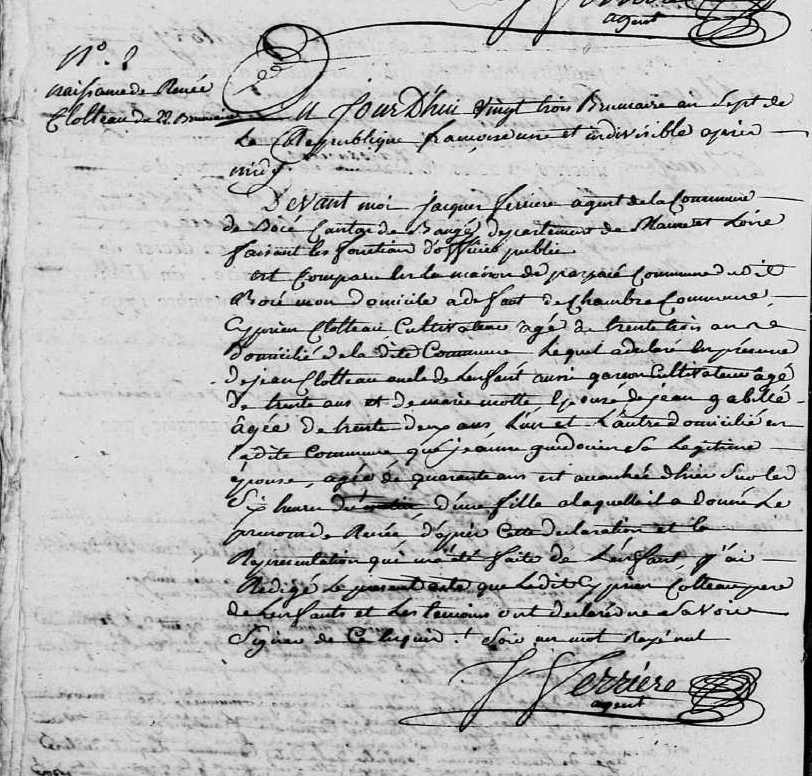 agent
N.o 8
naissance de Renée
Clotteau du 22 Brumaire
Aujourd'hui vingt trois Brumaire an Sept de
La République françoise une et indivisible apres
midy
Devant moi Jacques ferriere agent de la Commune
de Bocé Canton de Baugé département de Maine et Loire
faisant les fonction d'officier public
est Comparu Commune dudit
Bocé mon domicile a defaut de Chambre Commune
Cyprien Clotteau Cultivateur agé de trente trois ans
domicilié de la dite Commune Lequel a declaré en presence
de jean Clotteau oncle de Lenfant aussi garçon Cultivateur agé
de trente ans et de marie motte Epouse de jean gabillé
âgée de trente deux ans L'un et L'autre domicilié en
la dite Commune que jeanne sa Legitime
épouse, agée de quarante ans est accouchée d'hier sur les
Six heures d'une fille a laquelle il a donné Le
prenom de Renée, d'après Cette declaration et la
Representation qui m'a été faite de Lenfant j'ai
Redigé Le present acte que Ledit Cyprien Clotteau pere
de Lenfant et Les temoins ont declaré ne Savoir
Signer de Ce enquis . Soir un mot Rayé nul
J Ferrière
agent